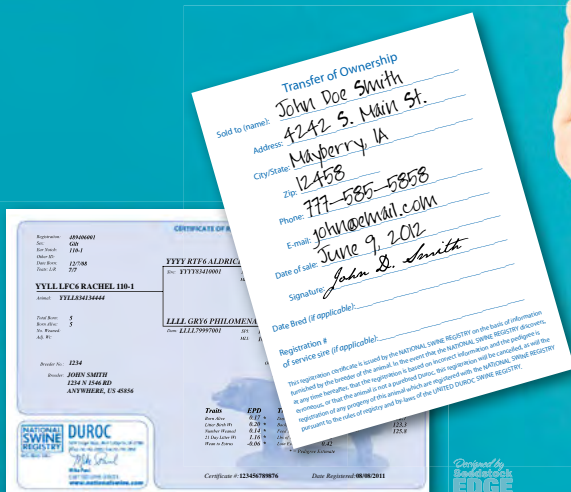 Transfer of Ownership
Sold to (name): John Doe Smith
Address: 4242 S. Main St.
City/State: Mayberry, IA
Zip: 12458
Phone: 777-585-5858
E-mail: john@email.com
Date of sale: June 9, 2012
Signature: John D. Smith
Date Bred (if applicable):
Registration #
of service sire (if applicable):
This registration certificate is issued by the NATIONAL SWINE REGISTRY on the basis of information
furnished by the breeder of the animal. In the event that the NATIONAL SWINE REGISTRY discovers,
at any time hereafter, that the registration is based on incorrect information and the pedigree is
erroneous, or that the animal is not a purebred Duroc, this registration will be cancelled, as will the
registration of any progeny of this animal which are registered with the NATIONAL SWINE REGISTRY
pursuant to the rules of registry and by-laws of the UNITED DUROC SWINE REGISTRY.
CERTIFICATE OF
Registration: 489406001
Sex: Gilt
Ear Notch: 110-1
Other ID:
Date Born: 12/7/08
Teats: L/R 7/7
YYLL LFC6 RACHEL 110-1
Animal: YYLL834134444
Total Born: 5
Born Alive: 5
No. Weaned:
Adj. Wt:
YYYY RTF6 ALDRIC
Sire: YYYY83410001
LLLL GRY6 PHILOMENA
Dam: LLLL79997001
Breeder No: 1234
Breeder: JOHN SMITH
1234 N 1546 RD
ANYWHERE, US 45856
Traits EPD
Born Alive 0.17
Litter Birth Wt 0.20
Number Weaned 0.14
21 Day Litter Wt 1.16
Wean to Estrus -0.06
123.3
125.8
0.42
* - Pedigree Estimate
NATIONAL
SWINE
REGISTRY
DUROC
Mike Paul
www.nationalswine.com
Certificate #: 123456789876
Date Registered: 08/08/2011
Designed by
Seedstock
EDGE